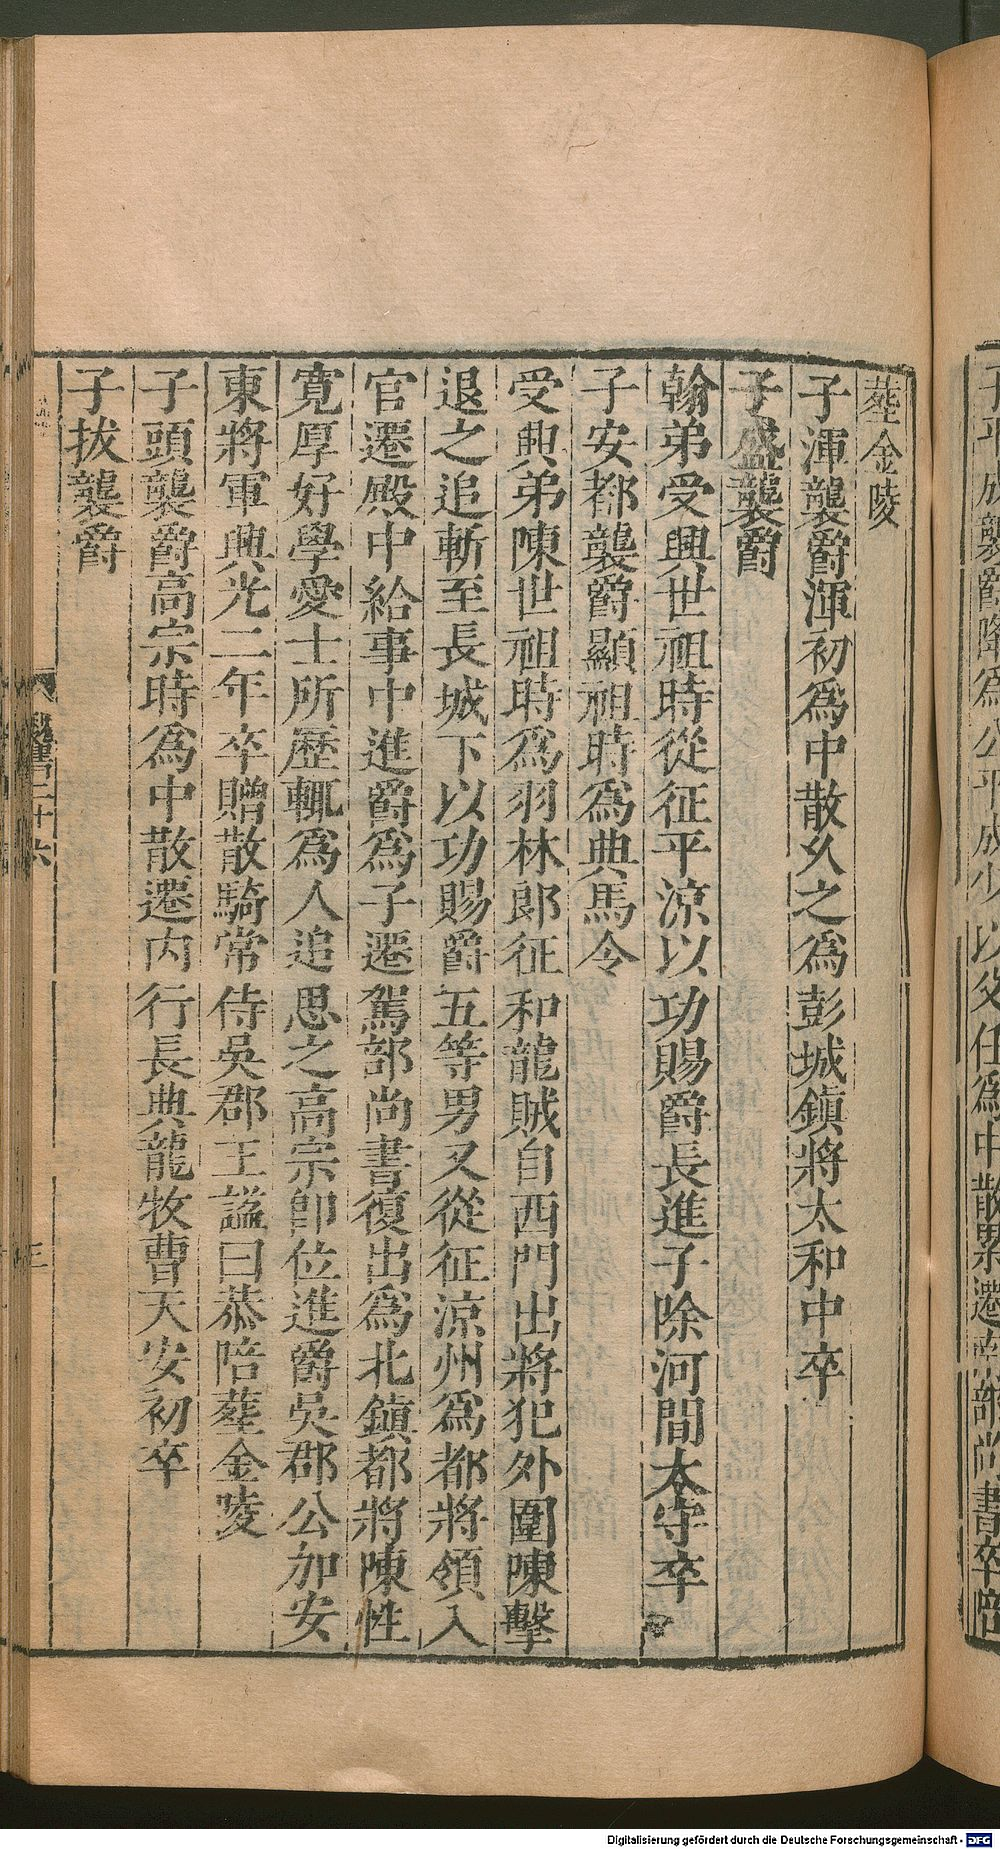 葬金陵
子渾襲爵渾初爲中散久之爲彭城鎭將太和中卒
子盛襲爵
翰弟受興世祖時從征平涼以功賜爵長進子除河間太守卒
子安都襲爵顯祖時爲典馬令
受興弟陳世祖時爲羽林郎征和龍賊自西門出將犯外圍陳擊
退之追斬至長城下以功賜爵五等男又從征涼州爲都將領入
官遷殿中給事中進爵爲子遷駕部尚書復出爲北鎭都將陳性
寛厚好學愛士所歷輒爲人追思之高宗卽位進爵吳郡公加安
東將軍興光二年卒贈散騎常侍吳郡王諡曰恭陪葬金陵
子頭襲爵高宗時爲中散遷内行長典龍牧曹天安初卒
子拔襲爵
魏書二十六
三
子平成襲爵降爲公平成少以父任爲中散累遷南部尚書卒陪
Digitalisierung gefördert durch die Deutsche Forschungsgemeinschaft - DFG